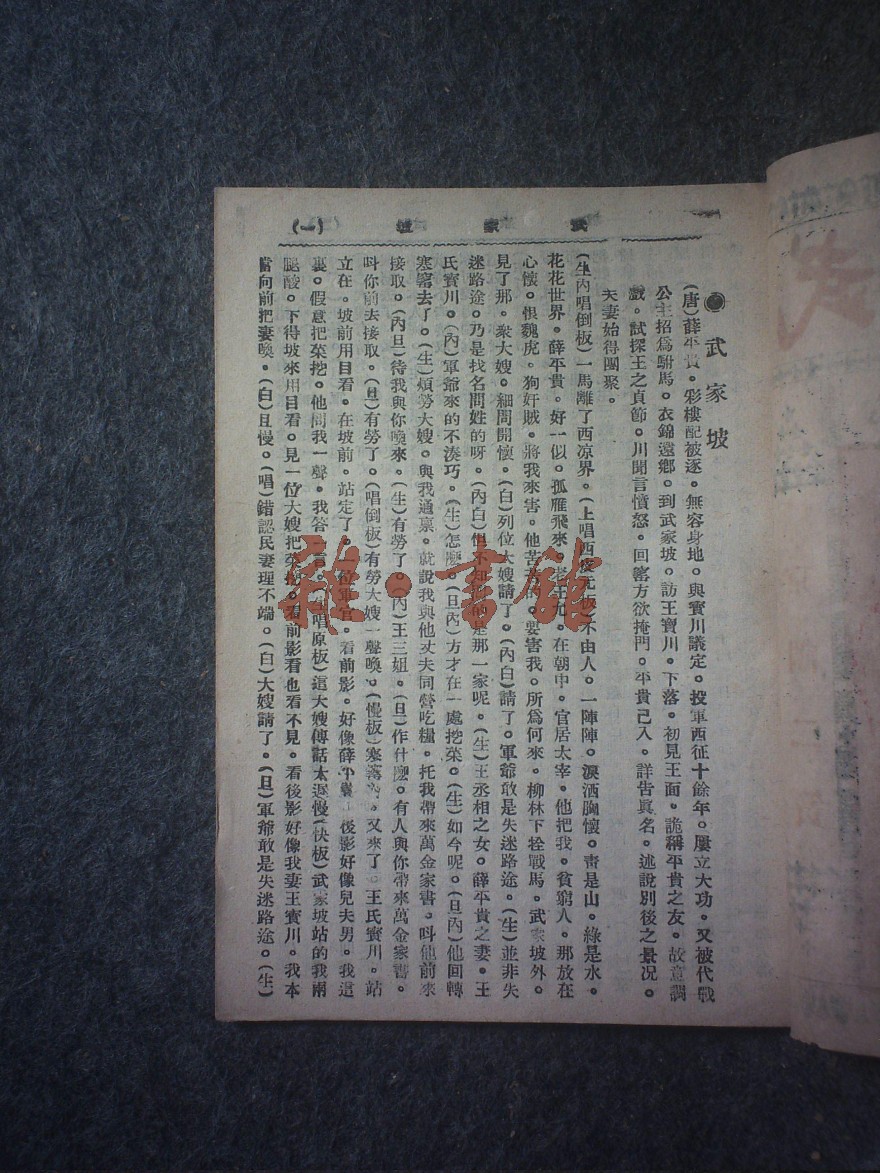 武家坡 (一)
●武家坡
(唐)薛平貴。彩樓配被逐。無容身地。與寶川議定。投軍西征十餘年。屢立大功。又被代戰
公主招爲駙馬。衣錦還鄉。到武家坡。訪王寶川。下落。初見王面。詭稱平貴之友。故意調
戲。試探王之貞節。川聞言憤怒。回窰方欲掩門。平貴已入。詳告眞名。述說別後之景况。
夫妻始得團聚。
(生內唱倒板)一馬離了西凉界。(上唱西皮元板)不由人。一陣陣。淚洒胸懷。靑是山。綠是水。
花花世界。薛平貴。好一似。孤雁飛來。老王允。在朝中。官居太宰。他把我。貧窮人。那放在
心懷。恨魏虎。狗奸賊。將我來害。他苦苦。要害我。所爲何來。柳林下拴戰馬。武家坡外。
見了那。衆大嫂。細問開懷。(白)列位大嫂請了。(內白)請了。軍爺敢是失迷路途。(生)並非失
迷路途。乃是找名問姓的呀。(內白)但不知找的是那一家呢。(生)王丞相之女。薛平貴之妻。王
氏寶川。(內)軍爺來的不湊巧。(生)怎麽。(旦內)方才在一處挖菜。(生)如今呢。(旦內)他回轉
寒窰去了。(生)煩勞大嫂。與我通禀。就說我與他丈夫同營吃糧。托我帶來萬金家書。叫他前來
接取。(內旦)待我與你喚來。(生)有勞了。(內)王三姐。(旦)作什麽。有人與你帶來萬金家書。
叫你前去接取。(旦)有勞了。(唱倒板)有勞大嫂一聲喚。(慢板)寒窰內。又來了。王氏寶川。站
立在。坡前用目看。在坡前。站定了。一位軍官。看前影。好像薛平貴。後影好像兒夫男。我這
裏。假意把菜挖。他問我一聲。我答一言。(生唱原板)這大嫂傳話太遲慢(快板)武家坡站的我兩
腿酸。下得坡來用目看。見一位大嫂把菜挖。看前影看也看不見。看後影好像我妻王寶川。我本
當向前把妻喚。(白)且慢。(唱)錯認民妻理不端。(白)大嫂請了。(旦)軍爺敢是失迷路途。(生)
雜·書館